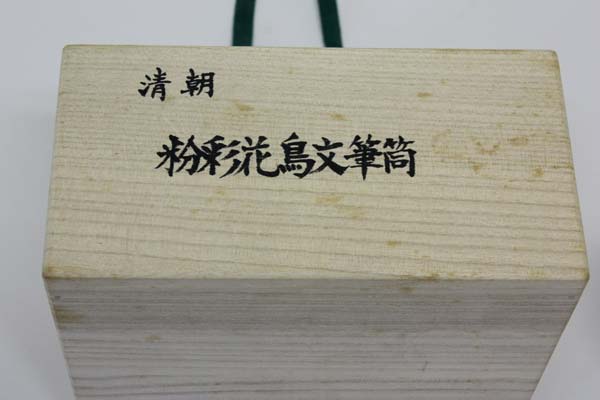 清朝
粉彩花鳥文筆筒